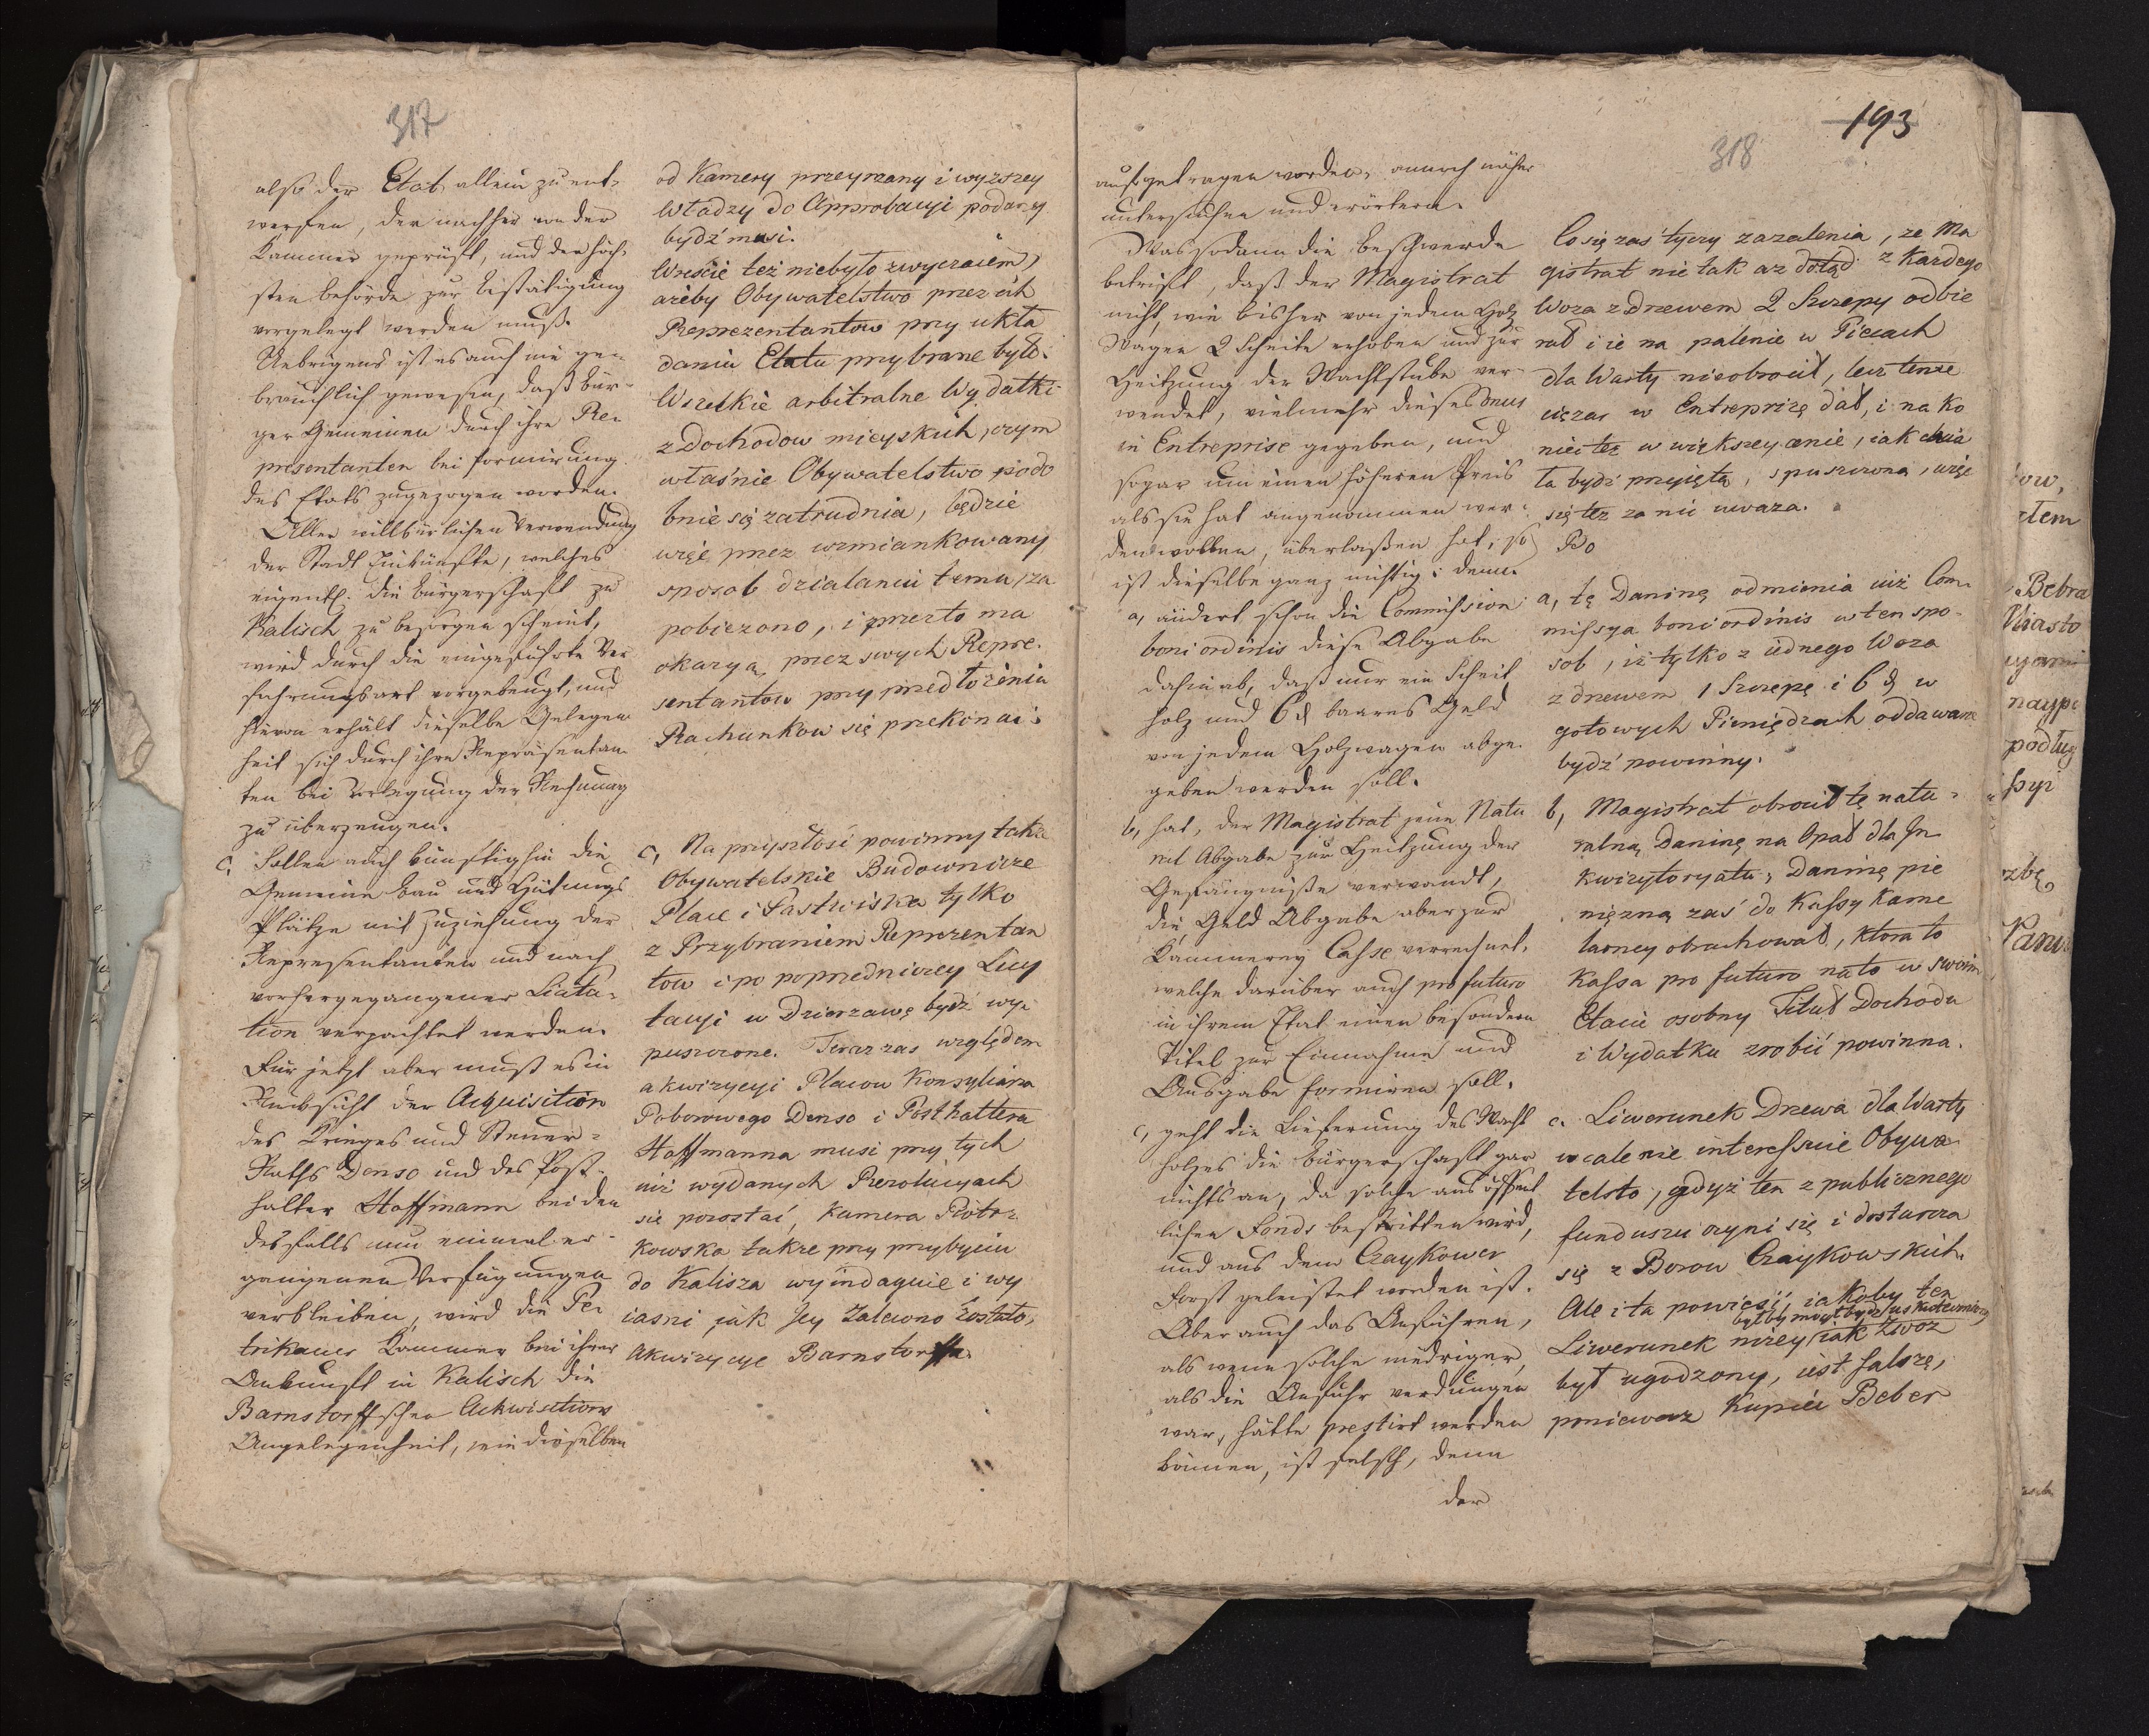 317
also der Etat allein zu ent-
werfen, der nachher von der
Kammer geprüft, und der höch-
sten Behörde zur Bestätigung
vorgelegt werden muß.
Uebrigens ist es auch nie ge-
bräuchlich gewesen, daß Bür-
ger Gemeinen durch ihre Re-
presentanten bei Formirung
des Etats zugezogen worden.
Aller willkürlichen Verwendung
der Stadt Einkünfte, welches
eigentl. die Bürgerschaft zu
Kalisch zu besorgen scheint,
wird durch die eingeführte Ver
fahrungsart vorgebeugt, und
hievon erhält dieselbe Gelegen
heit sich durch ihre Repräsentan
ten bei Vorlegung der Rechnung
zu überzeugen.
c, Sollen auch künftighin die
Gemeine Bau und Hütungs
Plätze mit Zuziehung der
Representanten und nach
vorhergegangener Licita-
tion verpachtet werden.
Für jetzt aber muß es in
Rücksicht der Acquisition
des Krieges und Steuer-
Raths Denso und des Post-
halter Hoffmann bei den
desfalls nun einmal er-
gangenen Verfügungen
verbleiben, wird die Pe-
trikauer Kammer bei ihrer
Ankunft in Kalisch die
Barnstorffschen Ackwisitions
Angelegenheit, wie dieselben
od Kamery przeyrzany i wyzszey
Władzy do Approbacyi podany
bydź musi.
Wreście też niebyło zwyczaiem,
ażeby Obywatelstwo przez ich
Reprezentantow przy ukła
daniu Etatu przybrane było.
Wszelkie arbitralne Wydatki
z Dochodow mieyskich, czym
właśnie Obywatelstwo podo
bnie się zatrudnia, będzie
więc przez wzmiankowany
sposob działaniu temu, za
pobieżono, i przezto ma
okazyą przez swych Repre-
sentantow przy przedłożeniu
Rachunkow się przekonać.
c, Na przyszłość powinny także
Obywatelskie Budownicze
Place i Pastwiska tylko
z Przybraniem Reprezentan
tow i po poprzedniczey Licy
tacyi w Dzierzawę bydź wy-
puszczone. Teraz zas względem
akwizycyi Placow Konsyliarza
Poborowego Denso i Posthaltera
Hoffmanna musi przy tych
niż wydanych Rezolucyach
się pozostać, Kamera Piotr-
kowska także przy przybyciu
do Kalisza wyindaguie i wy
iasni jak Jey Zalecono Zostało,
Akwizycye Barnstorffa.
193
318
aufgetragen worden, annoch näher
untersuchen und erörtern.
Was sodann die Beschwerde
betrift, daß der Magistrat
nicht, wie bisher von jedem Holz
Wagen 2 Scheite erhoben und zur
Heitzung der Wachtstube ver-
wendet, vielmehr dieses Onus
in Entreprise gegeben, und
sogar um einen höheren Preis
als sie hat angenommen wer-
den wollen, überlaßen hat, so
ist dieselbe ganz nichtig: denn
a, ändert schon die Commission
boni ordinis diese Abgabe
dahin ab, daß nur ein Scheit
Holz und 6 d baares Geld
von jedem Holzwagen abge-
geben werden soll.
b, hat, der Magistrat jene Natu
ral Abgabe zur Heitzung der
Gefängniße verwandt,
die Geld Abgabe aber zur
Kämmerey Casse verrechnet,
welche darüber auch pro futuro
in ihrem Etat einen besondern
Titel zur Einnahme und
Ausgabe formiren soll.
c, geht die Lieferung des Wacht
holzes die Bürgerschaft gar
nichts an, da solche aus öffent
lichen Fonds bestritten wird,
und aus dem Czaykower
Forst geleistet worden ist.
Aber auch das Anführen,
als wenn solche niedriger,
als die Anfuhr verdungen
war, hätte prestirt werden
können, ist falsch, denn
der
Co się zas tyczy zazalenia, ze Ma
gistrat nie tak az dotąd z Kazdego
Woza z Drzewem 2 Szczepy odbie
rał i ie na palenie w Piecach
dla Warty nieobrocił, lecz tenze
cięzar w Entreprizę dał, i na Ko
niec tez w większey cenie, iak chcia
ła bydź przyięta, spuszczona, więc
się tez za nic uwaza.
Bo
a, tę Daninę odmienia iuż Com-
missya boni ordinis w ten spo-
sob, iż tylko z iednego Woza
z drzewem 1 Szczepę i 6 d w
gotowych Pieniędzach oddawane
bydź powinny.
b, Magistrat obrocił tę natu-
ralną Daninę na Opał dla In-
kwizytoryatu, Daninę pie
nięzną zaś do Kassy Kame
larney obrachował, ktora to
Kassa pro futuro nato w swoim
Etacie osobny Tituł Dochodu
i Wydatku zrobić powinna.
c. Liwerunek Drzewa dla Warty
wcale nie interessuie Obywa-
telsto, gdyż ten z publicznego
funduszu czyni się i dostarcza
się z Borow Czaykowskich.
Ale i ta powieść iakoby ten
byłby mogł bydź uskuteczniony
Liwerunek nizey iak Zwoz
był ugodzony, iest falszę,
poniewaz Kupiec Beber
ow,
Bebra
Miasto
naypi
podług
ssyi
zbę